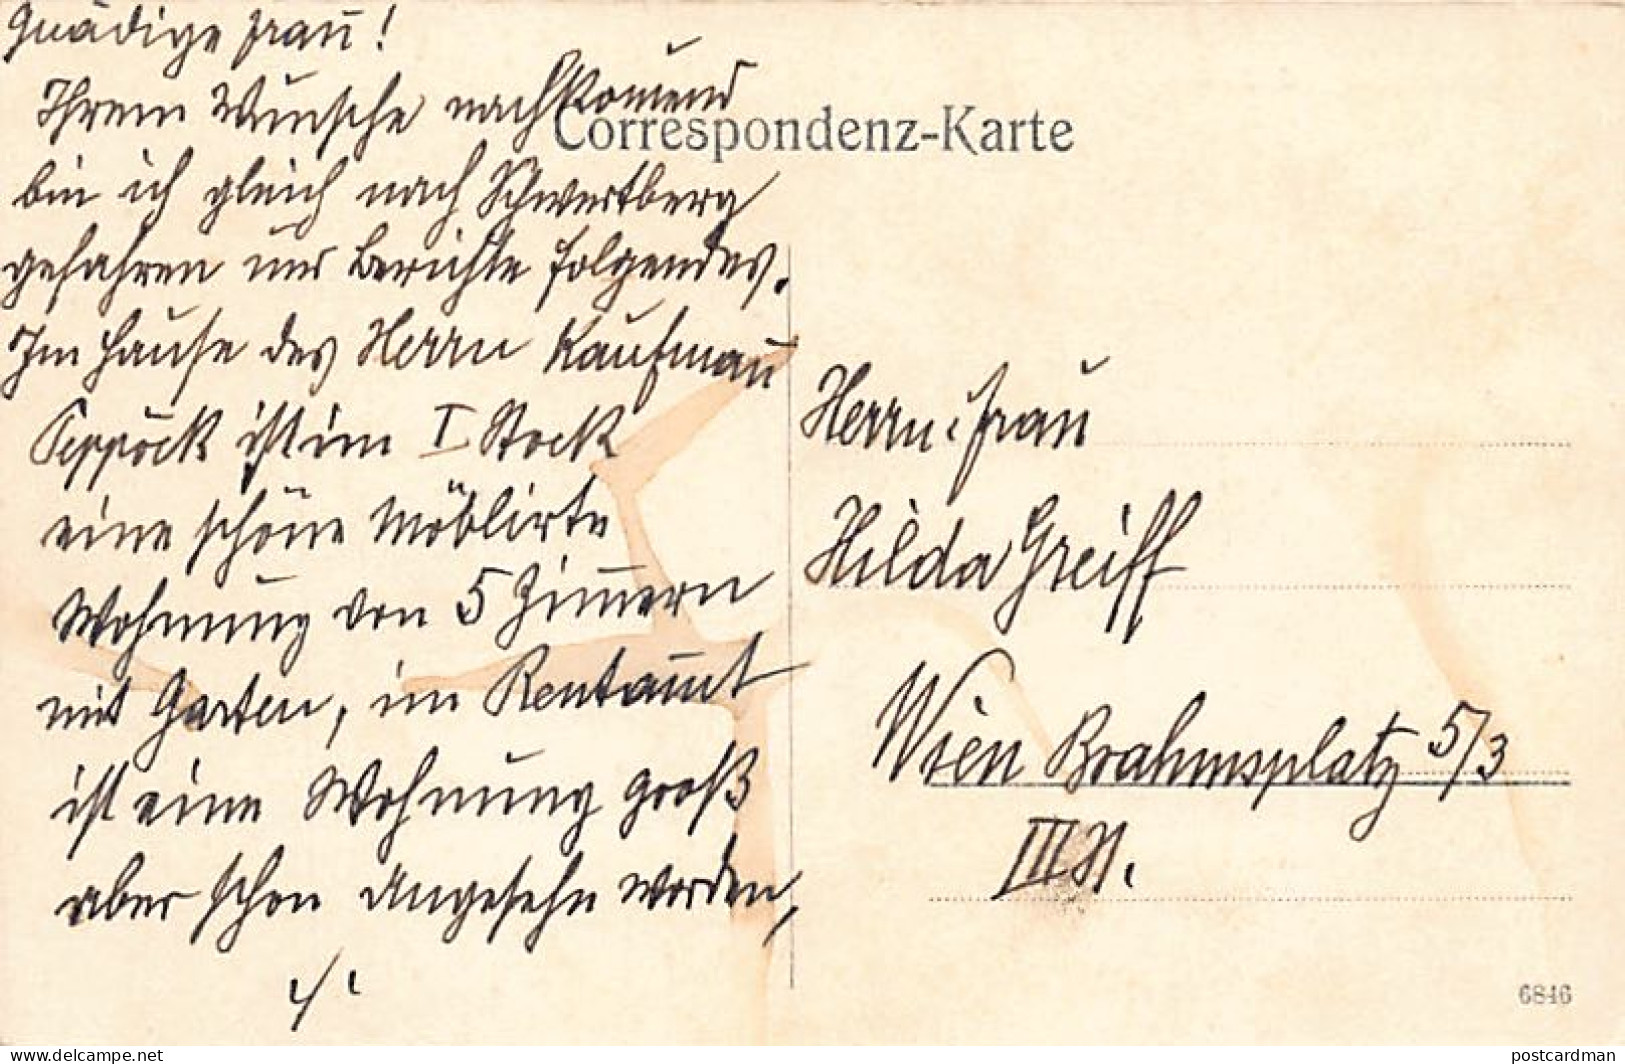 Gnädige Frau!
Ihrem Wunsche nachkom̄end
bin ich gleich nach Schwertberg
gefahren und Berichte folgendes.
Im Hause des Herrn Kaufman̄
ist im I Stock
eine schöne Möblirte
Wohnung von 5 Zim̄ern
mit Garten, im Rentam̄t
ist eine Wohnung groß
aber schon Angesehn worden,
./.
Correspondenz-Karte
Herrn: Frau
Hilda Greiff
Wien Brahmsplatz 5/3
III
6846
delcampe.net
postcardman